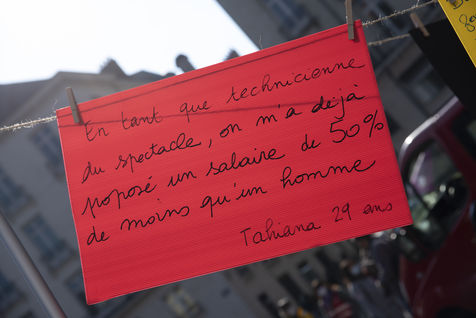 En tant que technicienne
du spectacle, on m'a déjà
proposé un salaire de 50%
de moins qu'un homme
Tahiana 29 ans